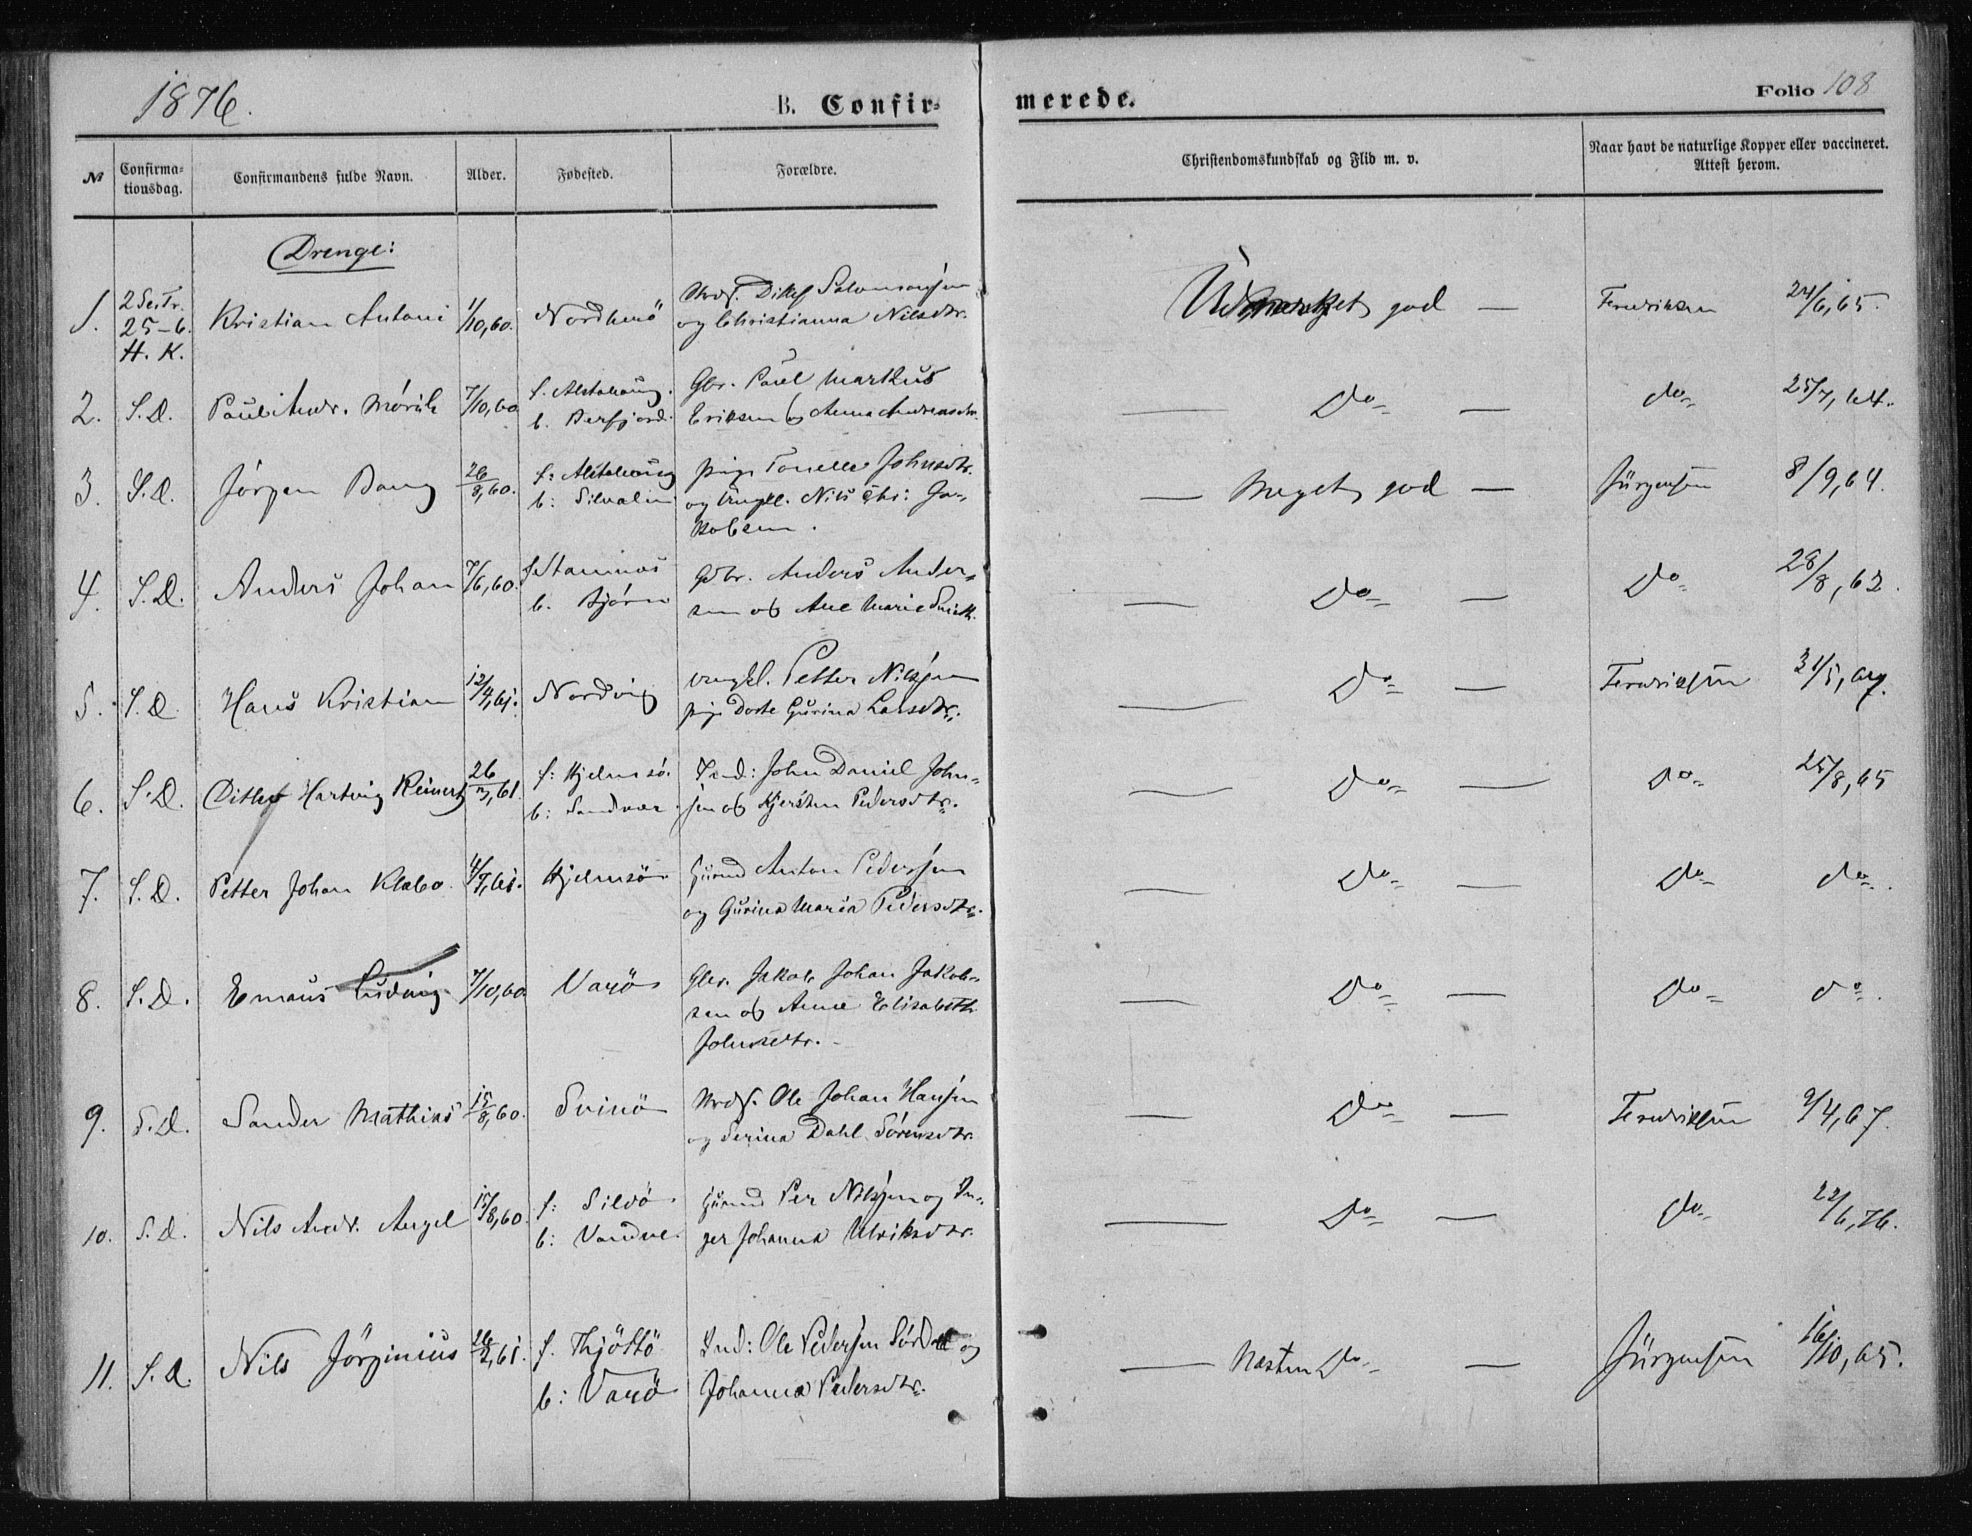 1876.
B. Confir-
merede.
Folio 108
№
Confirma-
tionsdag.
Confirmandens fulde Navn.
Alder.
Fødested.
Forældre.
Christendomskundskab og Flid m. v.
Naar havt de naturlige Kopper eller vaccineret.
Attest herom.
Drenge:
1. 2 Se. Tr. 25-6. H. K. Kristian Antoni 1/10,60. Ditlef Salomonsen
og Christianna Nilsdtr. god — 24/6,65.
2. S.D. 7/10,60 f. Alstahaug. Gbr. Paul Markus
Eriksen og Anna Andreasdtr. — Do — do 25/7,64.
3. S.D. Jörgen 26/8,60. f: Alstahaug pige Johnsdtr.
b: og Ungkl. Nils Chr: Ja-
kobsen.
— Meget god — Jürgensen 8/9,64.
4. S.D. Anders Johan 7/6,60. Gbr. Anders Ander-
b. Bjørn sen og Ane Marie
— Do — Do 28/8,62.
5. S.D. Hans Kristian 12/4,61. Nordvig ungkl. Petter Nilsen
pige Dorte Gurina Larsdtr.
— Do — 31/5,
6. S.D. Ditlef Hartvig Reinert 26/3,61. f: Hjelmsø. Ind: John Daniel John-
b: Sandvær sen og Kjersten Pedersdtr.
— Do — Do 25/8,65
7. S.D. Petter Johan Klæbo. Hjelmsö Anton Pedersen
og Gurina Maria Pedersdtr.
— Do — Do do.
8. S.D. Emaus Ludvig. 7/10,60 Gbr. Jakob Johan Jakob-
sen og Anne Elisabeth
Johnsdtr.
— Do — Do do.
9. S.D. Sander Mathias 15/8,60. Svinö Ole Johan Hansen
og Serina Dahl Sörensdtr.
— Do — 9/4,67.
10. S.D. Nils Andr. Angel 15/8,60. f: Silvö Per Nilsen og In-
b: Vandve. ger Johanna Ulriksdtr.
— Do — do 22/6,76.
11. S.D. Nils Jörginius f. Thjöttö Ind: Ole Pedersen og
b: Johanna Pedersdtr.
— Næsten Do — Jürgensen 16/10,65.